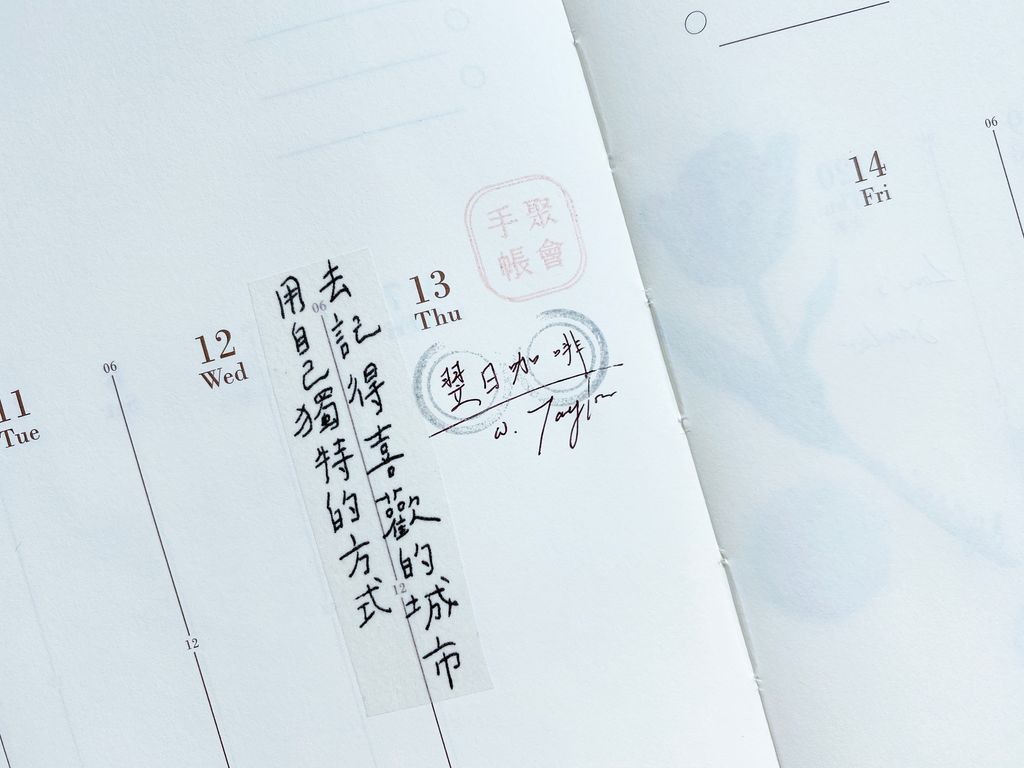 11
Tue
06
12
12
Wed
用自己獨特的方式
去記得喜歡的城市
06
12
13
Thu
手帳
聚會
翌日咖啡
w. Taylor
14
Fri
06